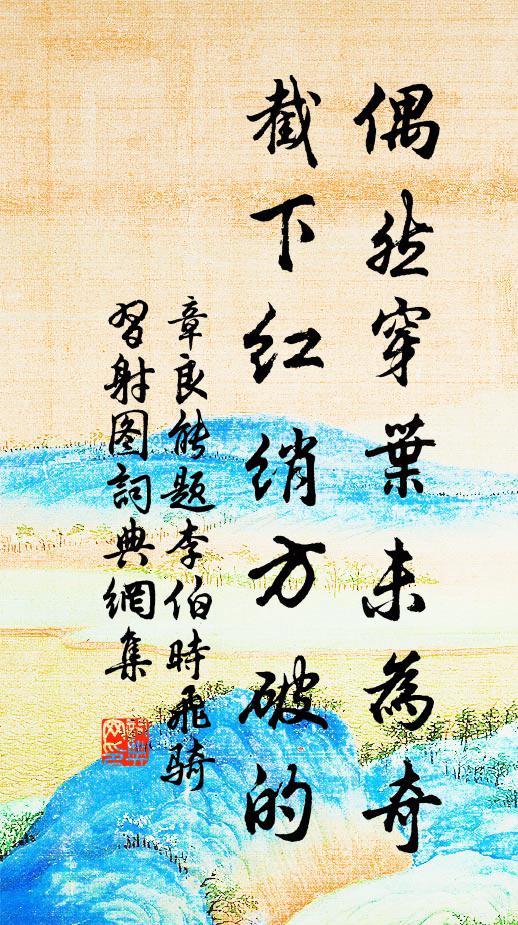 偶然穿葉未為奇
截下红綃方破的
章良能题李伯時飛骑
習射图詞典網集